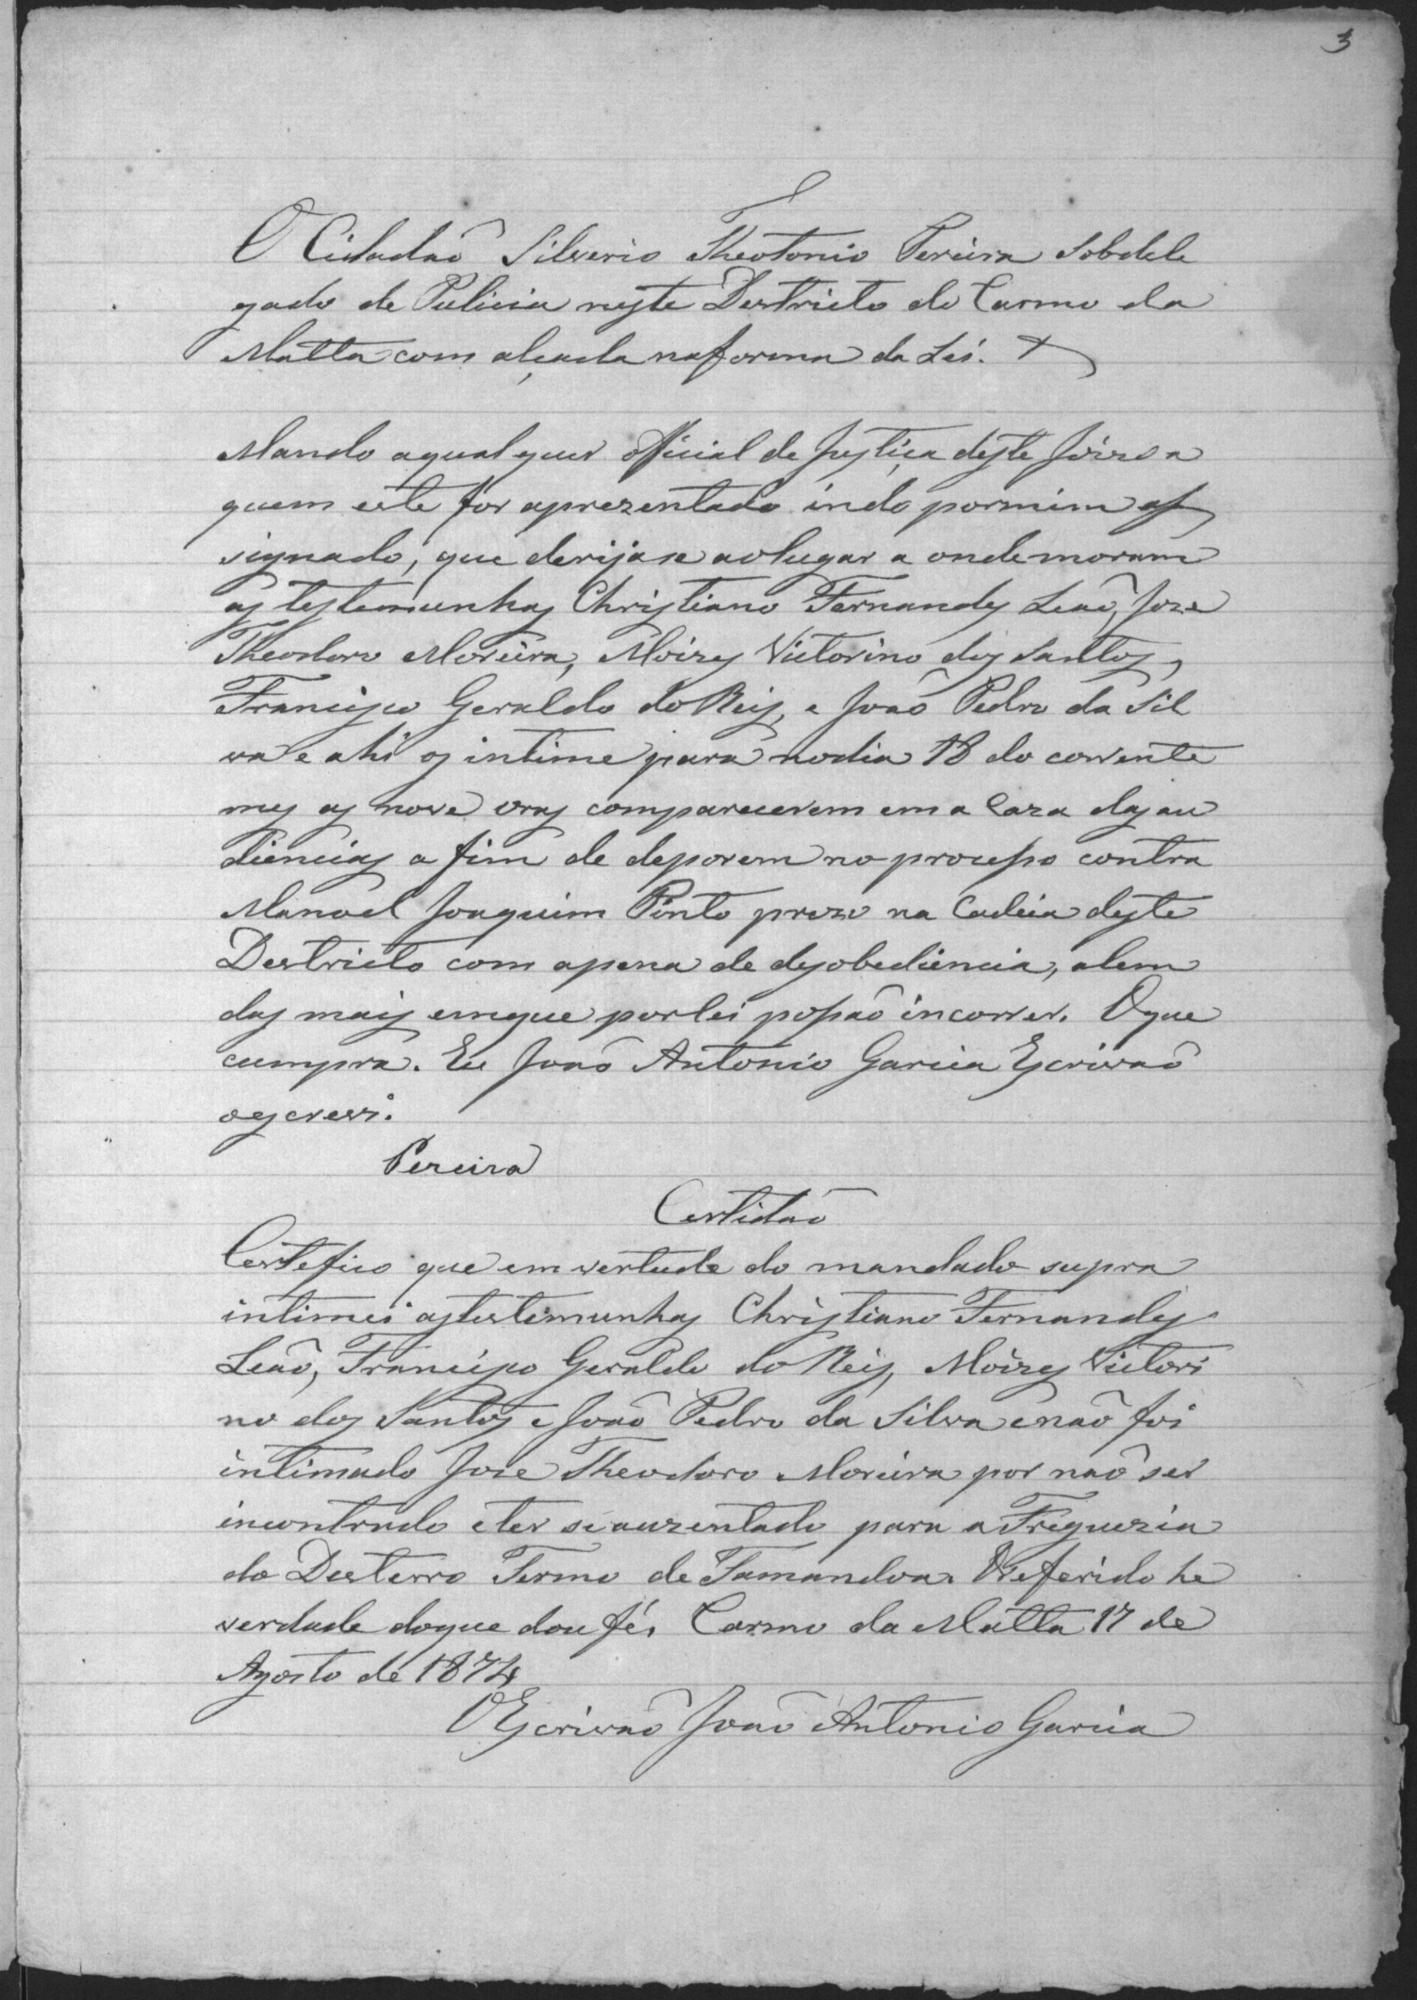 3
O Cidadaõ Silverio Theotonio Pereira Sobdele
gado de Pulicia neste Destricto do Carmo da
Matta com alçada na forma da Lei.
Mando a qual quer official de Justiça deste Joizo a
quem este fôr aprezentado indo por mim as
signado, que derija se ao lugar a onde moram
as testemunhas Christiano Fernandes Leaõ, Joze
Theodoro Moreira, Moizes Victorino dos Santos,
Francisco Geraldo do Reis, e Joaõ Pedro da Sil
va e ahi os intime para no dia 18 do corrente
mes as nove oras comparecerem em a Caza das au
diencias a fim de deporem no processo contra
Manoel Joaquim Pinto prezo na Cadeia deste
Destricto com a pena de desobediencia, alem
das mais em que por lei possaõ incorrer. O que
cumpra. Eu Joaõ Antonio Garcia Escrivaõ
o escrevi.
Pereira
Certidaõ
Certefico que em vertude do mandado supra
intimei as testemunhas Christiano Fernandes
Leaõ, Francisco Geraldo do Reis, Moizes Victori
no dos Santos e Joaõ Pedro da Silva e naõ foi
intimado Joze Theodoro Moreira por naõ ser
incontrado e ter si auzentado para a Freguezia
do Desterro Termo de Tamandua. O referido he
verdade do que dou fé. Carmo da Matta 17 de
Agosto de 1874
O Escrivaõ Joaõ Antonio Garcia